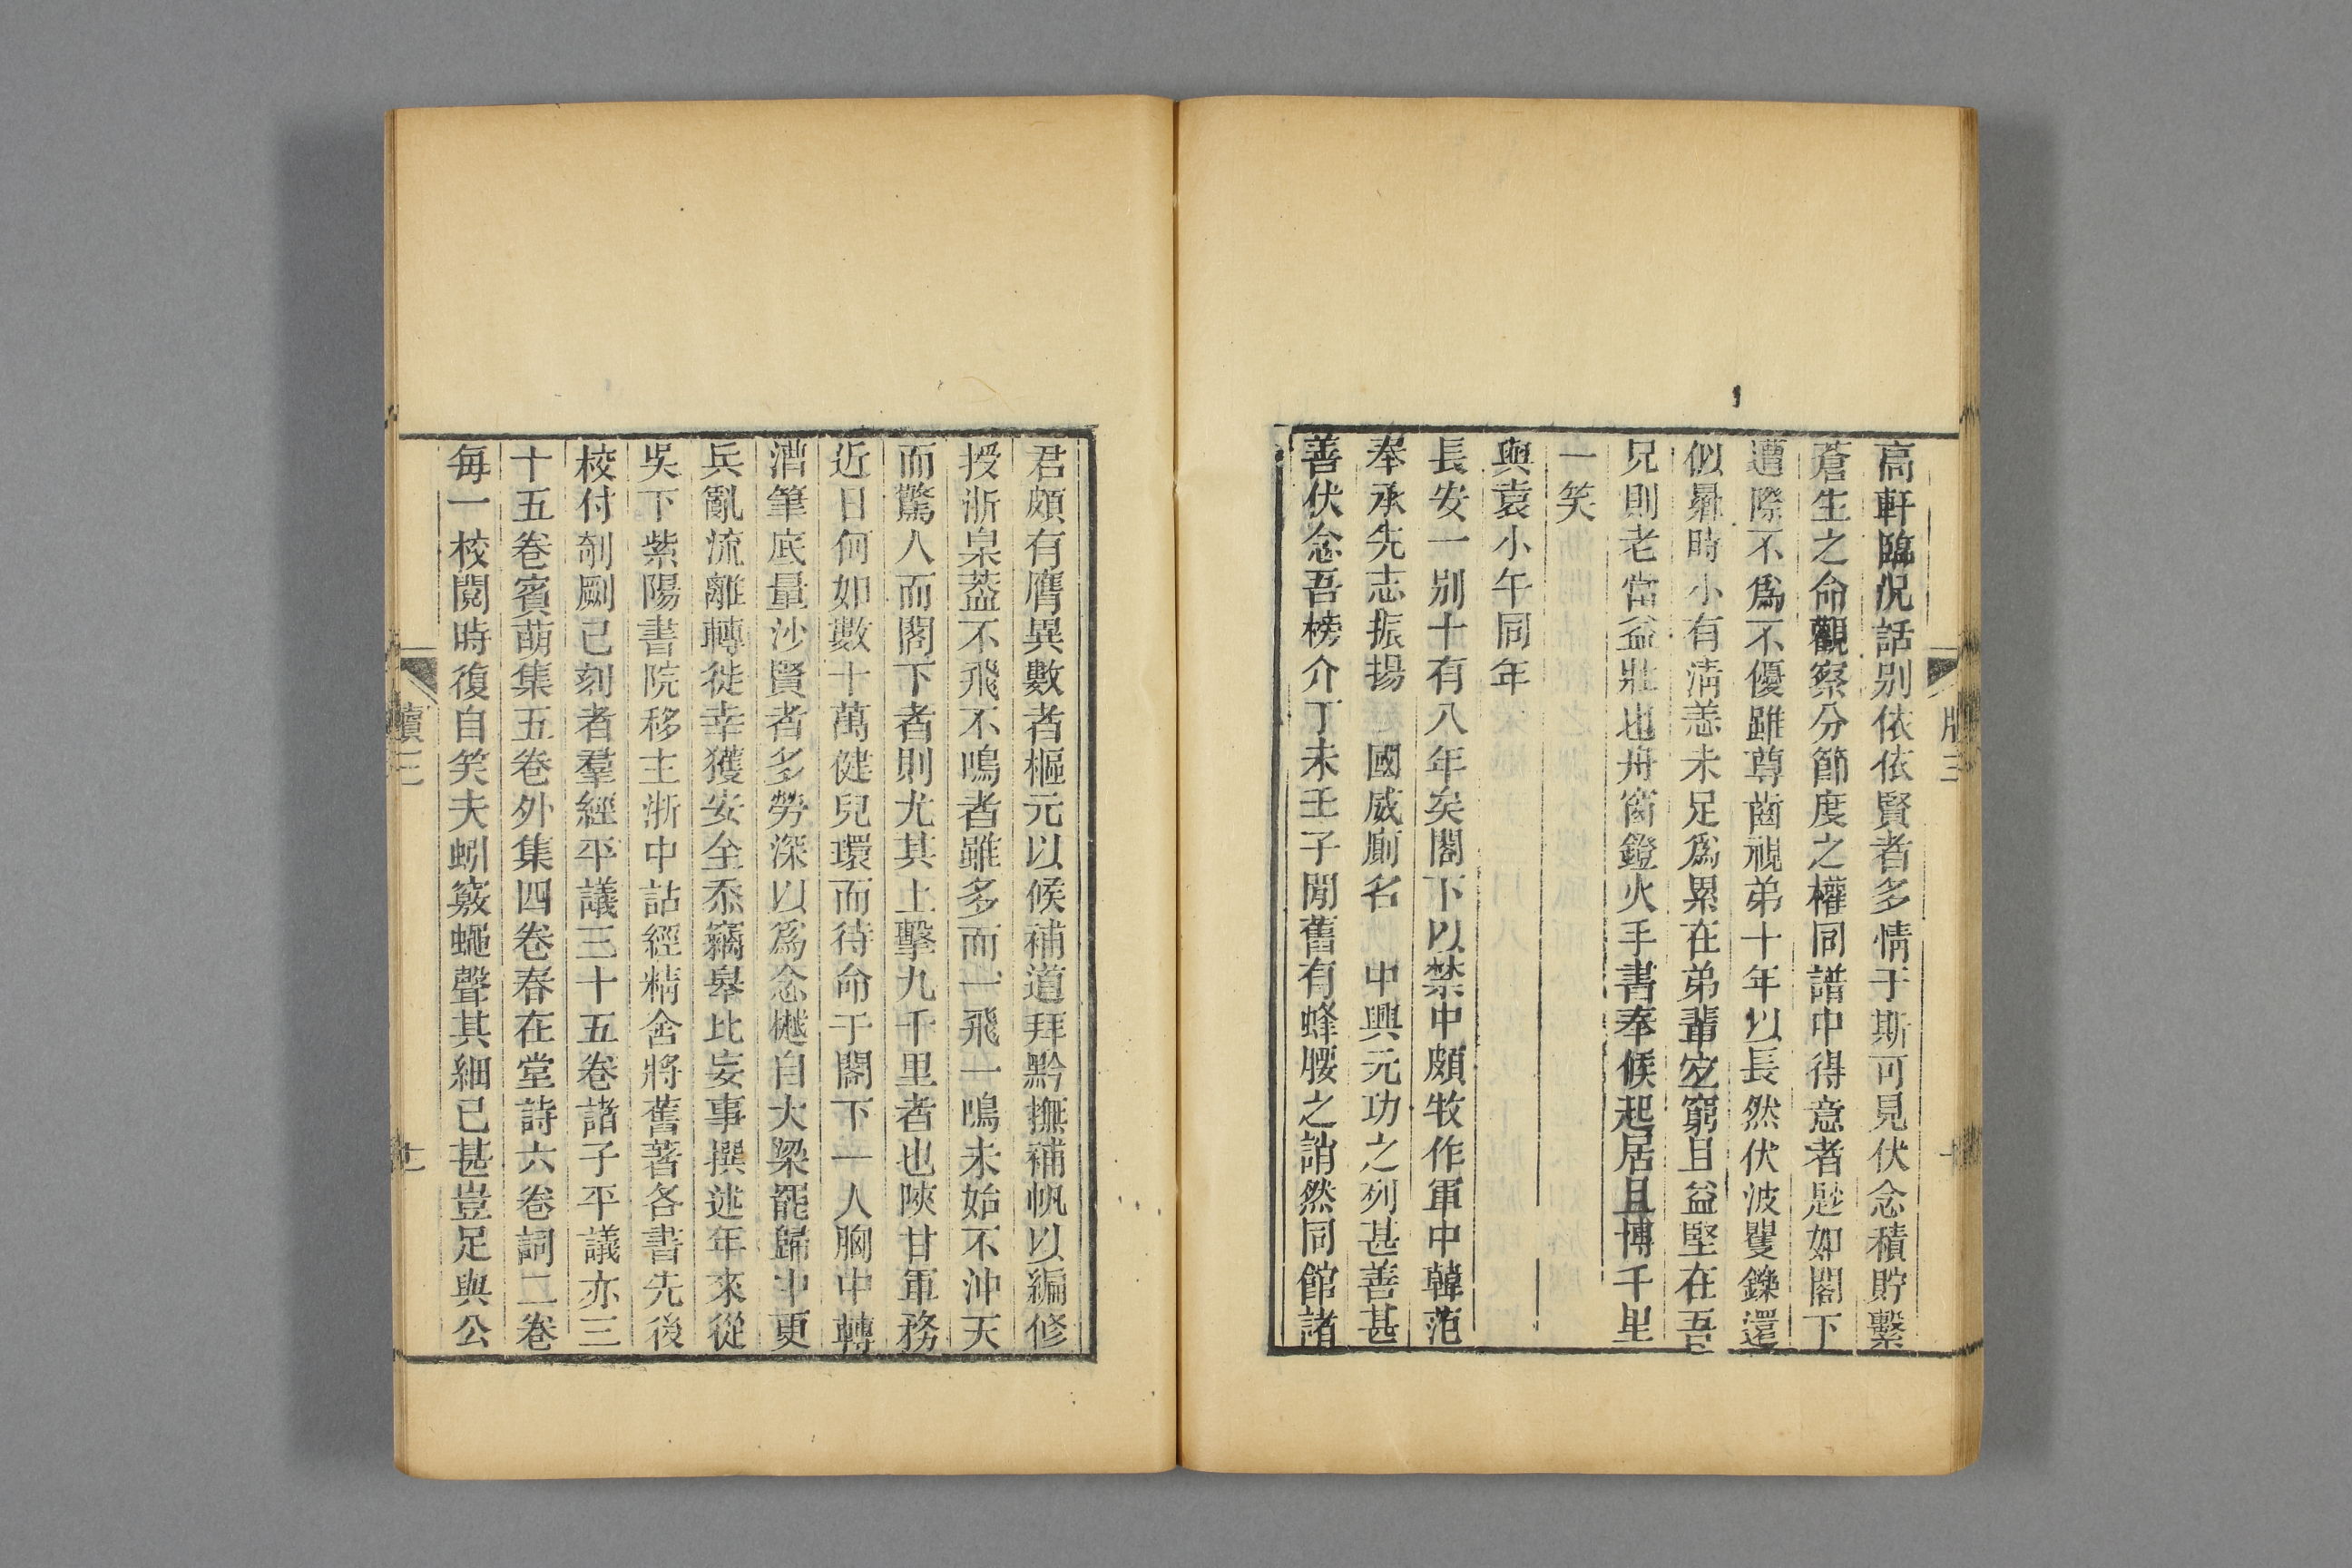 高軒臨況話别依依賢者多情于斯可見伏念積貯繫
蒼生之命觀察分節度之權同譜中得意者是如閣下
遭際不爲不優雖尊齒視弟十年以長然伏波矍鑠還
似曩時小有淸恙未足爲累在弟輩空窮且益堅在吾
兄則老當益壯也舟窗鐙火手書奉候起居且博千里
一笑
與袁小午同年
長安一别十有八年矣閣下以禁中頗牧作軍中韓范
奉承先志振揚 國威廁名 中興元功之列甚善甚
善伏念吾榜介丁未壬子閒舊有蜂腰之誚然同館諸
君頗有膺異數者樞元以候補道拜黔撫補帆以編修
授浙臬葢不飛不鳴者雖多而一飛一鳴未始不沖天
而驚人而閣下者則尤其上擊九千里者也陝甘軍務
近日何如數十萬健兒環而待命于閣下一人胸中轉
漕筆底量沙賢者多勞深以爲念樾自大梁罷歸中更
兵亂流離轉徙幸獲安全忝竊皋比妄事撰述年來從
吳下紫陽書院移主浙中詁經精舍將舊著各書先後
校付剞劂已刻者羣經平議三十五卷諸子平議亦三
十五卷賓萌集五卷外集四卷春在堂詩六卷詞二卷
每一校閱時復自笑夫蚓竅蠅聲其細已甚豈足與公
牘三